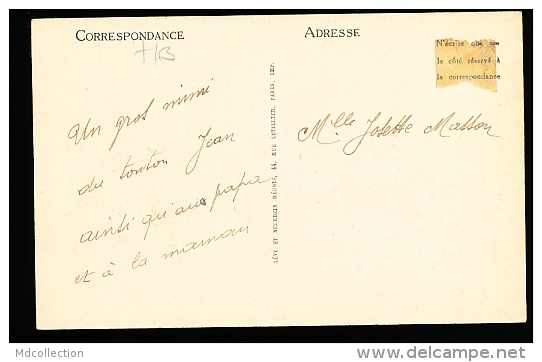 CORRESPONDANCE
ADRESSE
7/B
N'écrire que
le côté réservé à
la correspondance
Un gros mimi
du tonton Jean
ainsi qu'aux papa
et à la maman
LÉVY ET NEURDEIN RÉUNIS, 44, RUE LETELLIER, PARIS, IMP.
Mlle Josette Masson
Mdcollection
delcampe.net